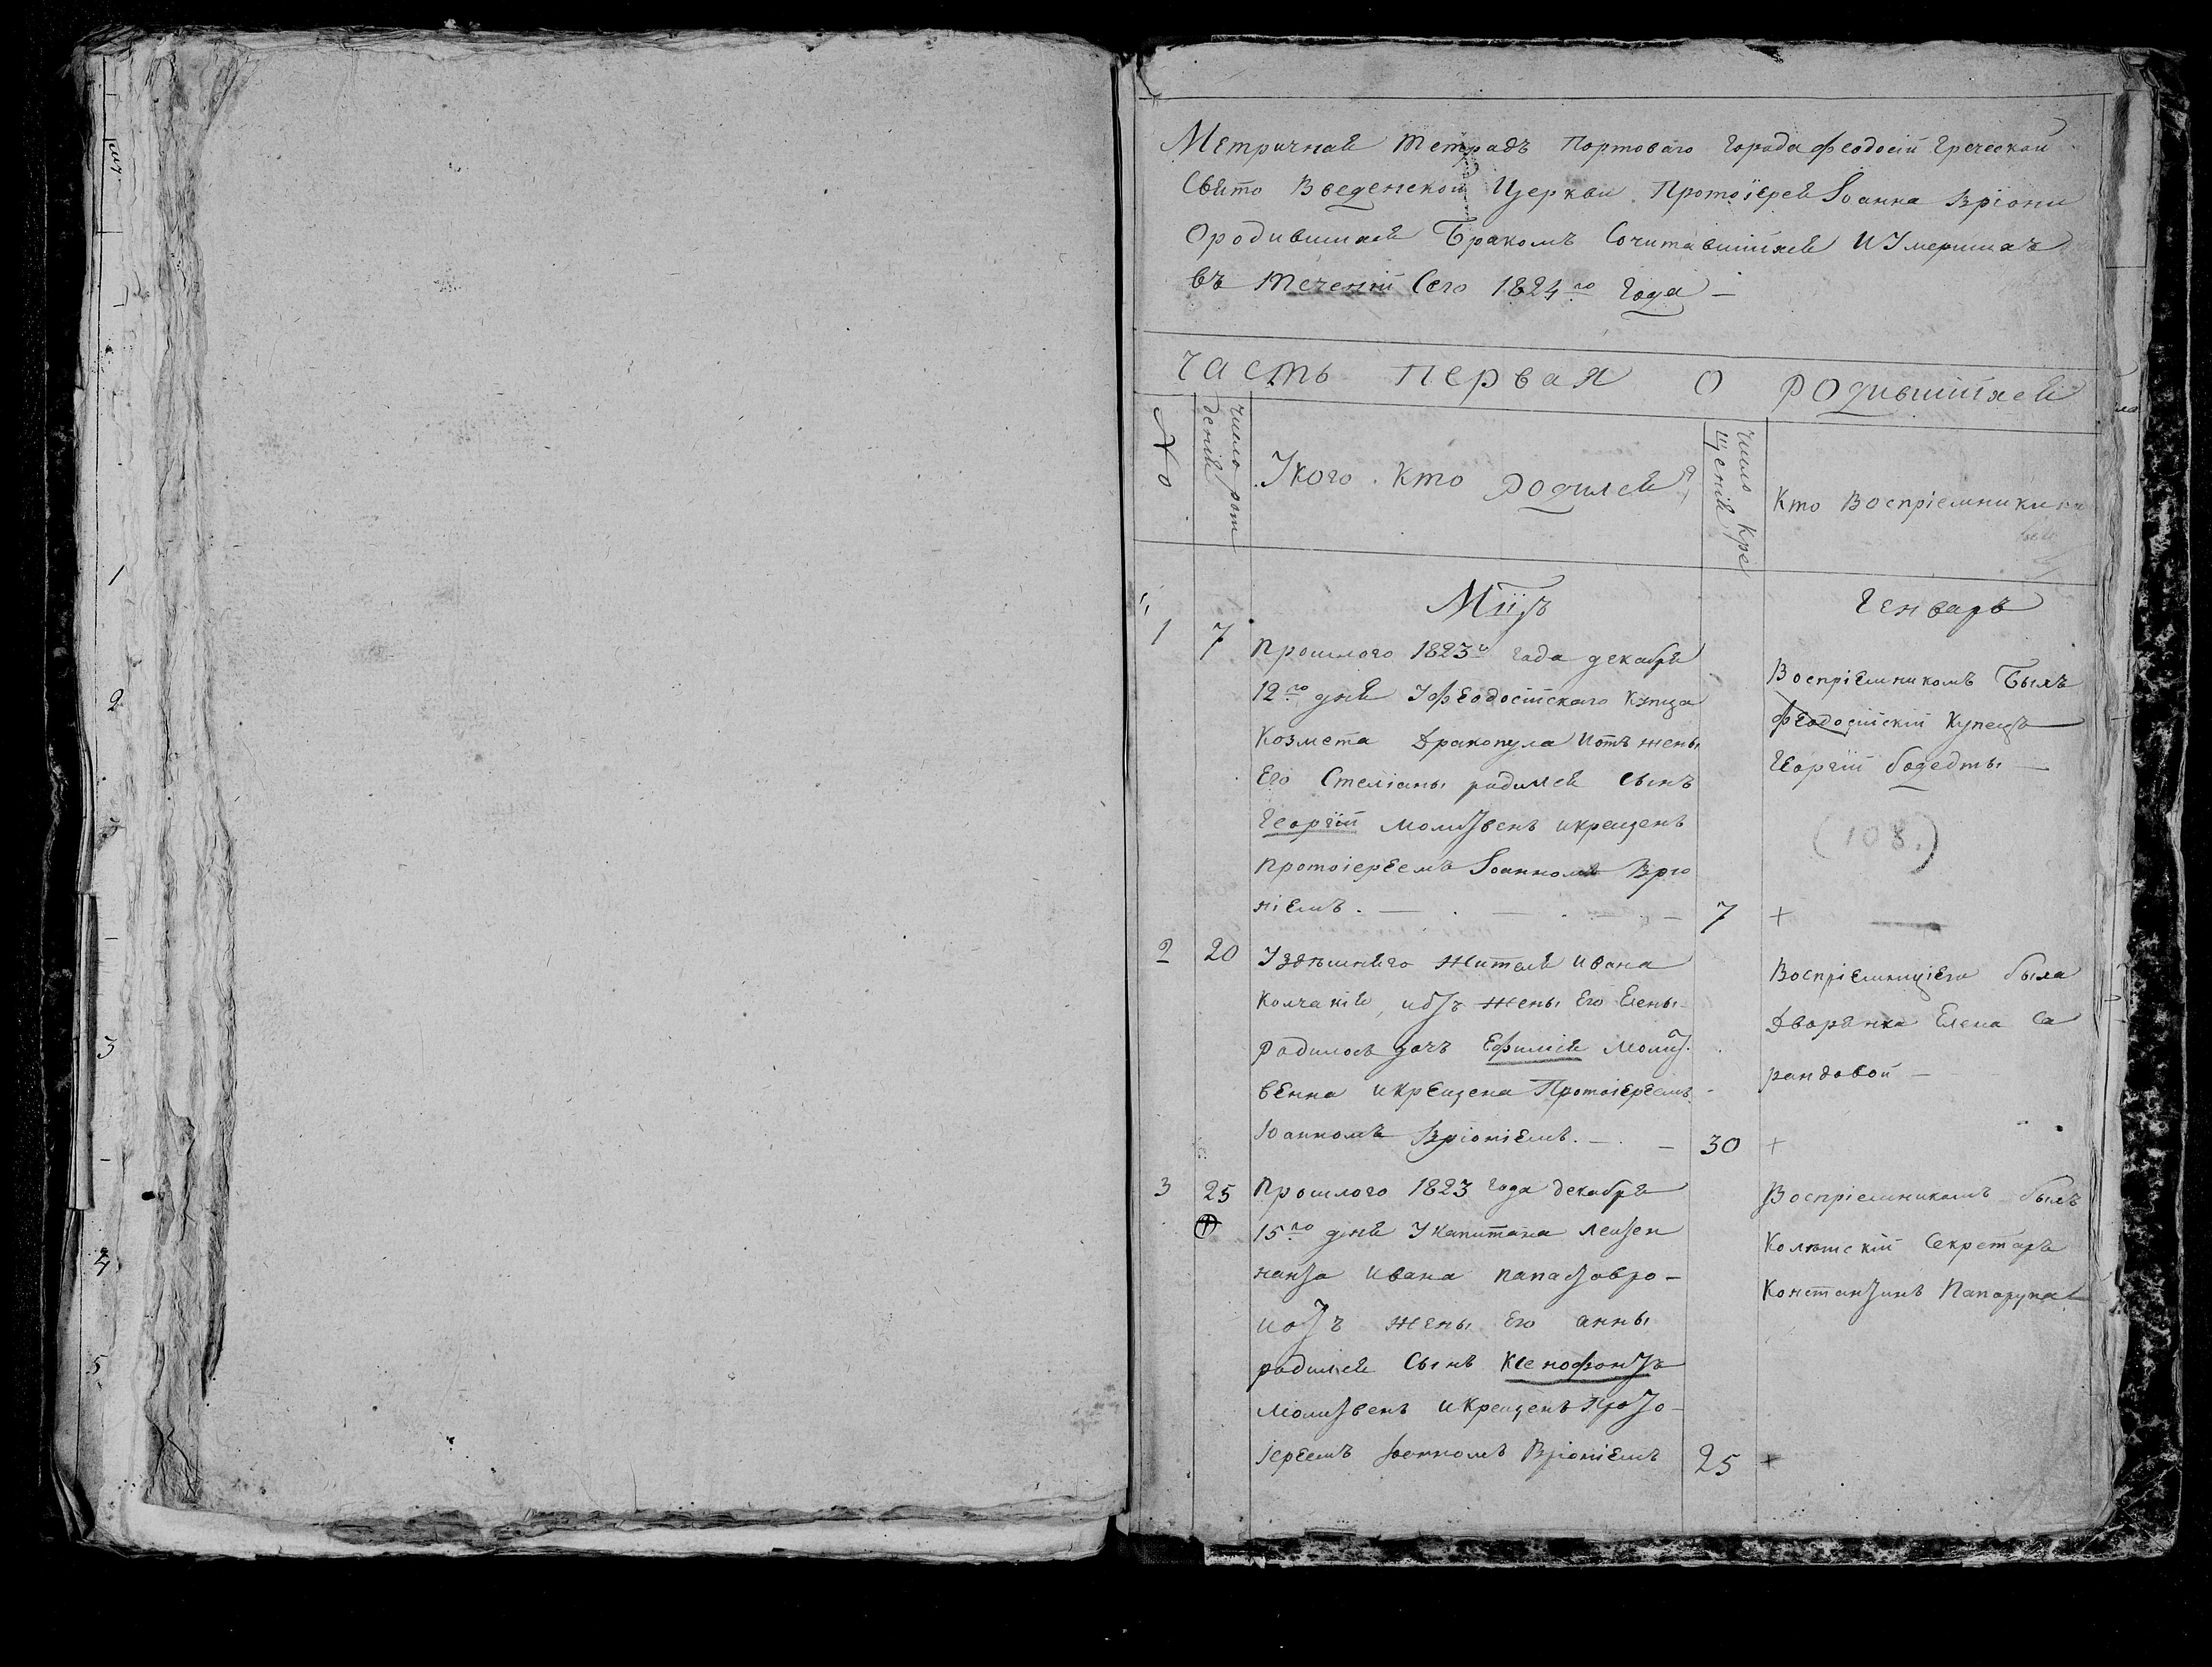 Метричная тетрадъ портоваго города Феодосіи греческой
Свято Введенской Церкви Протоіерея Іоанна Вріони
Ородившихся Бракомъ Сочитавшихся и Умершихъ
въ теченіи Сего 1824го года —
часть первая о родившихся
No
число рож
деній
Укого кто родился
число кре
щенія
Кто Воспріемники
Мцъ
Генварь
1
7
прошлого 1823го года декабря
12го дня У феодосійского купца
Козмета Дракопула и отъ жены
Его Стеліаны родился сынъ
Георгій молитвенъ и крещенъ
протоіереемъ Іоанномъ Врю
ніемъ. — . — . — —
7
Воспріемникомъ Былъ
феодосійскій купецъ
Георгій
(108.)
+
2
20
Уздѣшняго жителя Ивана
Колчанія, и отъ жены Его Елены
родилось дочь Ефимія молит
венна и крещена Протоіереемъ
Іоанномъ Вріоніемъ. — . —
30
Воспріемницею была
Дворянка Елена Са
рандовой —
+
3
25
прошлого 1823 года декабря
15го дня Укапитана леитен
нанта Ивана папаставро —
и отъ жены Его анны
родился сынъ Ксенофонтъ
молитвенъ и крещенъ Прото —
іереемъ Іоанномъ Вріоніемъ
25
Воспріемникомъ былъ
Секретарь
Константинъ Папарупа
+
1
2
3
4
5